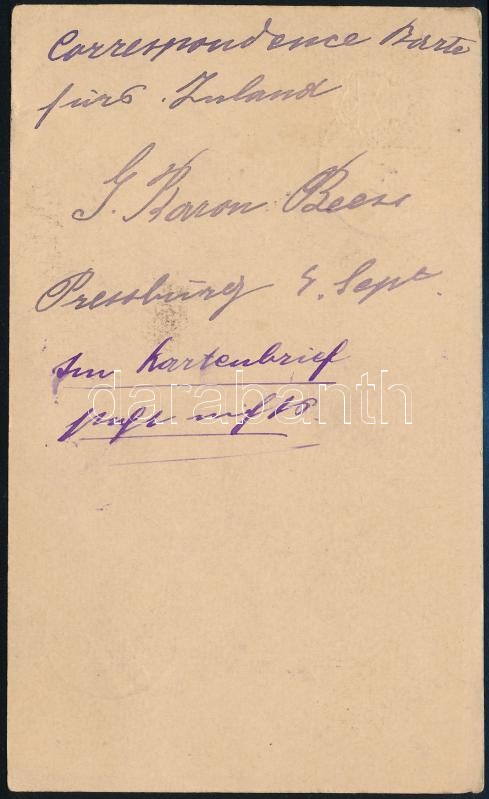 Correspondence Karte
fürs Inland
G. Baron Beess
Pressburg 5. Sept.
Im Kartenbrief
steht nichts.
darabanth